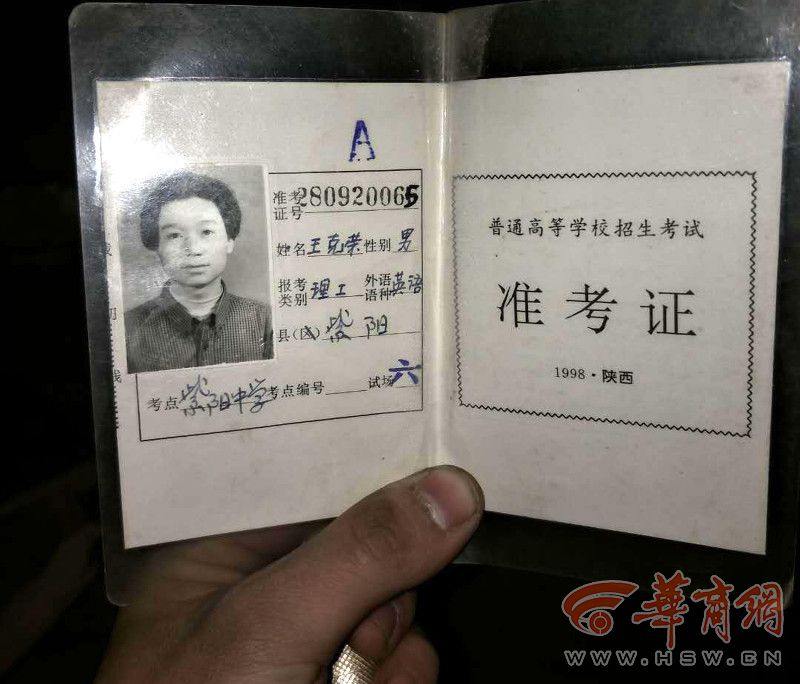 A
准考证号 280920065
姓名 王克荣 性别 男
报考类别 理工 外语语种 英语
县(区) 紫阳
考点 紫阳中学 考点编号 试场 六
普通高等学校招生考试
准考证
1998·陕西
華商網
WWW.HSW.CN